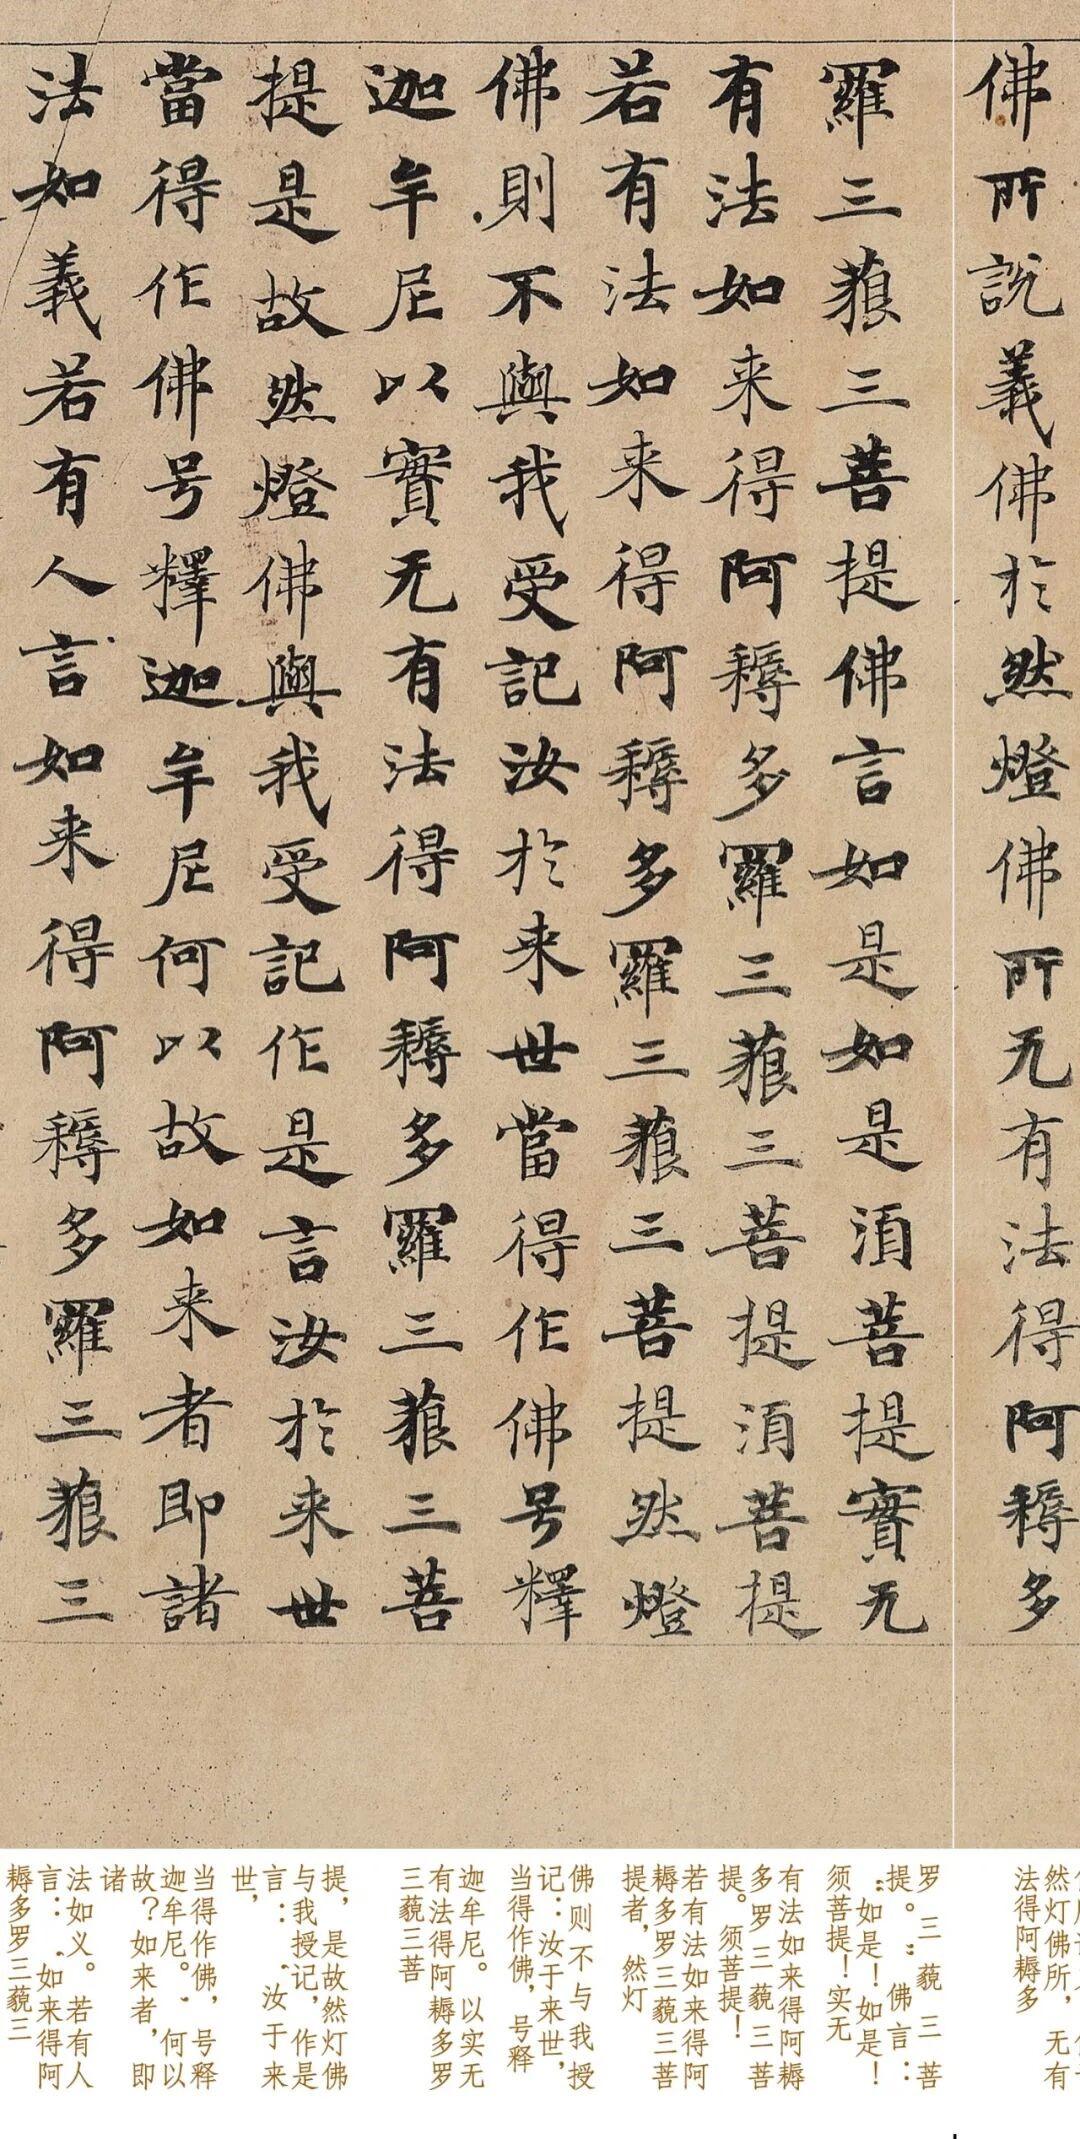 佛所說義佛於然燈佛所无有法得阿耨多
羅三藐三菩提佛言如是如是湏菩提實无
有法如来得阿耨多羅三藐三菩提湏菩提
若有法如来得阿耨多羅三藐三菩提然燈
佛則不與我受記汝於来世當得作佛号釋
迦牟尼以實无有法得阿耨多羅三藐三菩
提是故然燈佛與我受記作是言汝於来世
當得作佛号釋迦牟尼何以故如来者即諸
法如義若有人言如来得阿耨多羅三藐三
然灯佛所，无有
法得阿耨多
罗三藐三菩
提。”佛言：
“如是！如是！
须菩提！实无
有法如来得阿耨
多罗三藐三菩
提。须菩提！
若有法如来得阿
耨多罗三藐三菩
提者，然灯
佛则不与我授
记：汝于来世，
当得作佛，号释
迦牟尼。以实无
有法得阿耨多罗
三藐三菩
提，是故然灯佛
与我授记，作是
言：‘汝于来
世，
当得作佛，号释
迦牟尼。’何以
故？如来者，即
诸
法如义。若有人
言：‘如来得阿
耨多罗三藐三